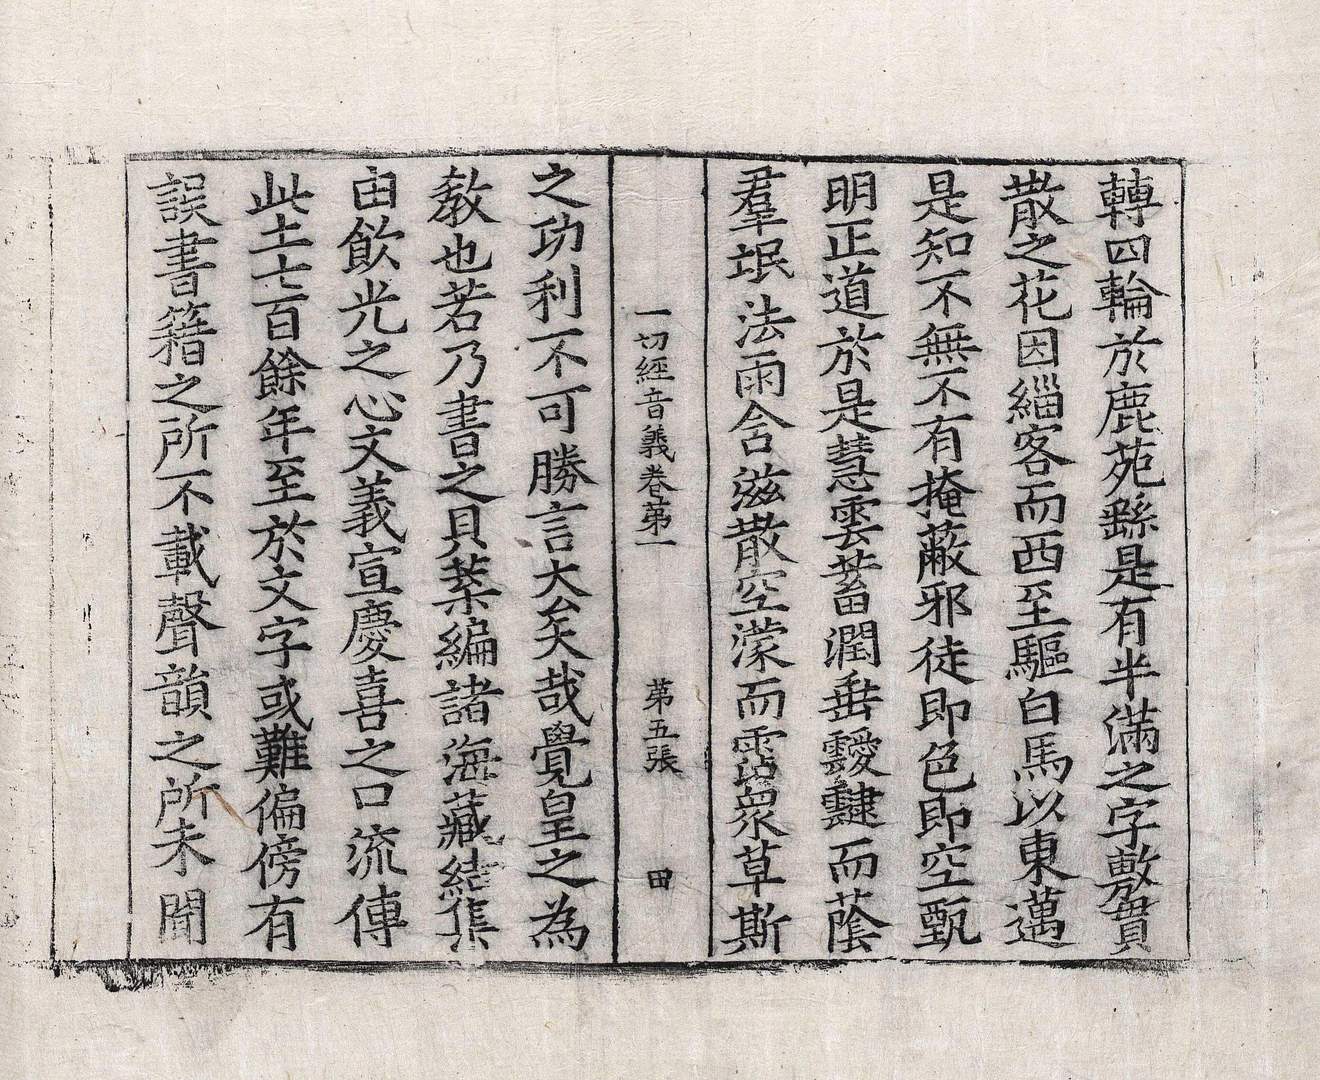 轉四輪於鹿苑繇是有半滿之字敷貫
散之花因緇客而西至驅白馬以東邁
是知不無不有掩蔽邪徒即色即空甄
明正道於是慧雲蓄潤垂靉靆而蔭
羣氓法雨含滋散空濛而霑眾草斯
一切經音義卷第一 第五張 田
之功利不可勝言大矣哉覺皇之為
教也若乃書之貝葉編諸海藏結集
由飲光之心文義宣慶喜之口流傳
此土七百餘年至於文字或難偏傍有
誤書籍之所不載聲韻之所未聞